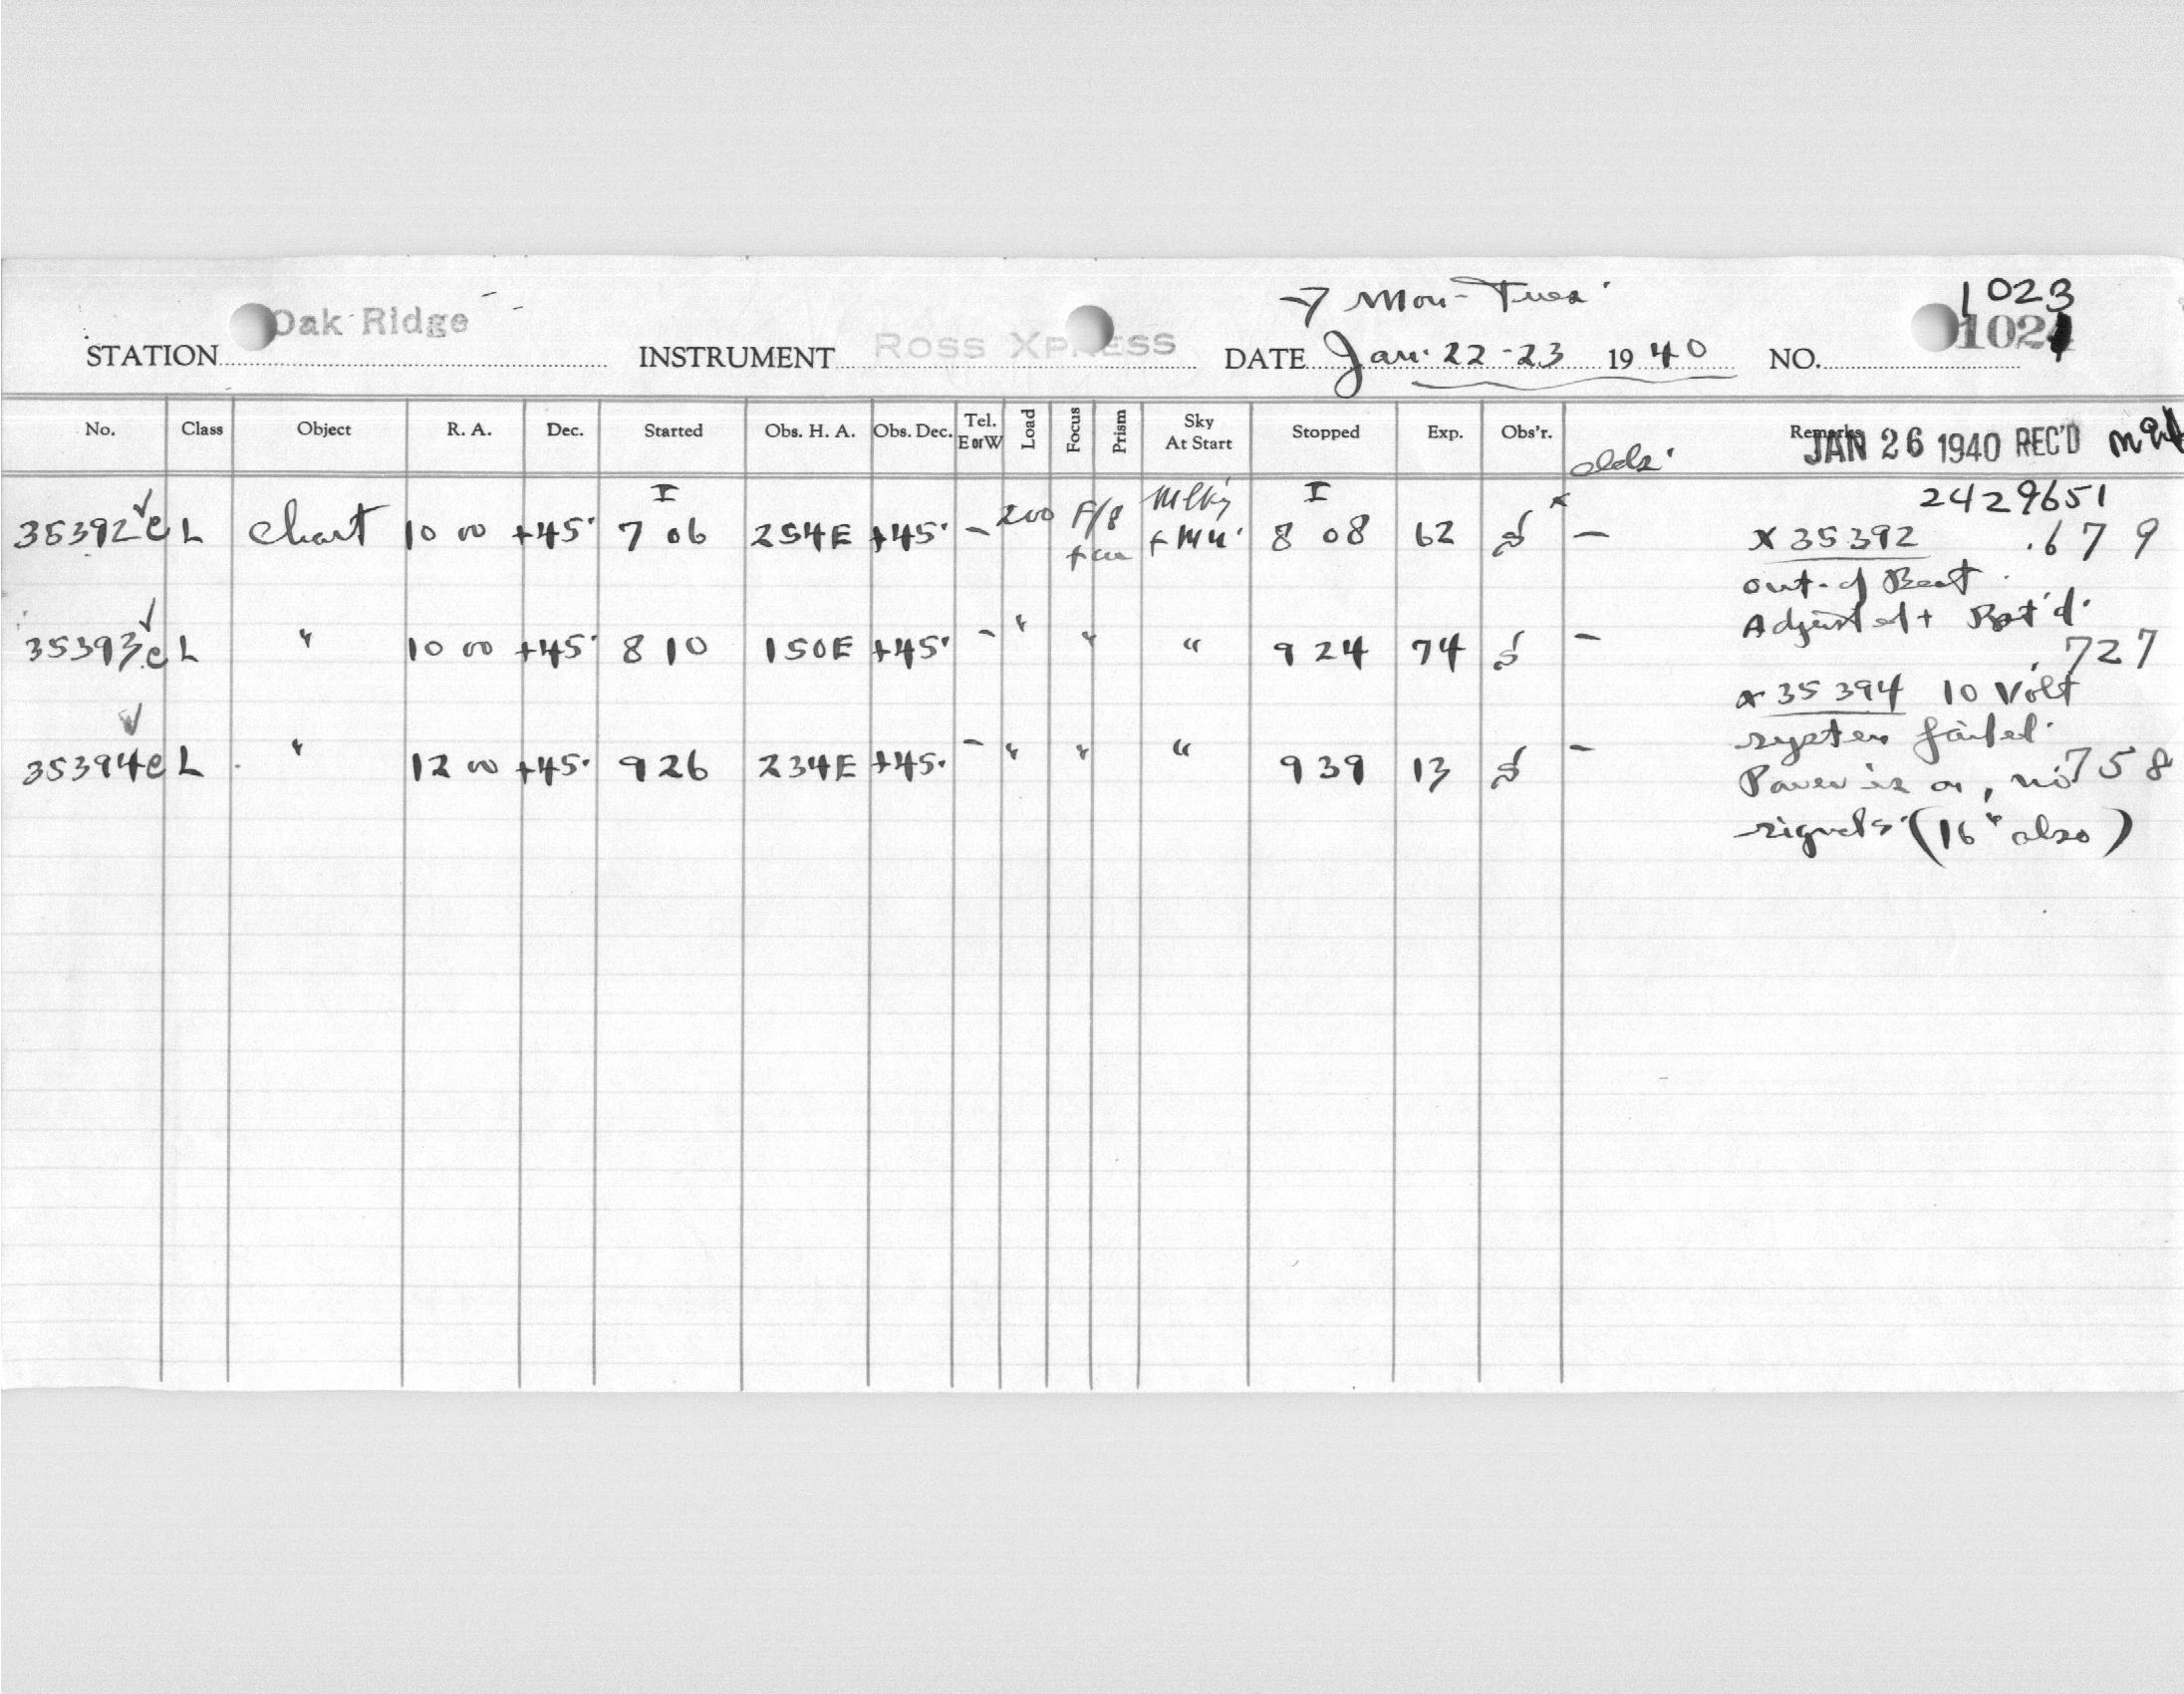 → Mon-Tues.
1023
Oak Ridge
STATION INSTRUMENT ROSS XPRESS DATE Jan. 22-23 1940 NO. 1024
No. Class Object R. A. Dec. Started Obs. H. A. Obs. Dec. Tel. E or W Load Focus Prism Sky At Start Stopped Exp. Obs'r. Remarks
JAN 26 1940 REC'D
2429651
35392 c L Chart 10 00 +45° I 7 06 254E +45° - 200 F/8 Milky + Mn. I 8 08 62 — x 35392 .679
out of Beat
Adjusted + Rpt'd.
35393 c L " 10 00 +45° 8 10 150E +45° - " " " 9 24 74 — .727
x 35394 10 Volt
system failed.
35394 c L " 12 00 +45° 9 26 234E +45° - " " " 9 39 13 — .758
Power is on, no
signals (16" also)